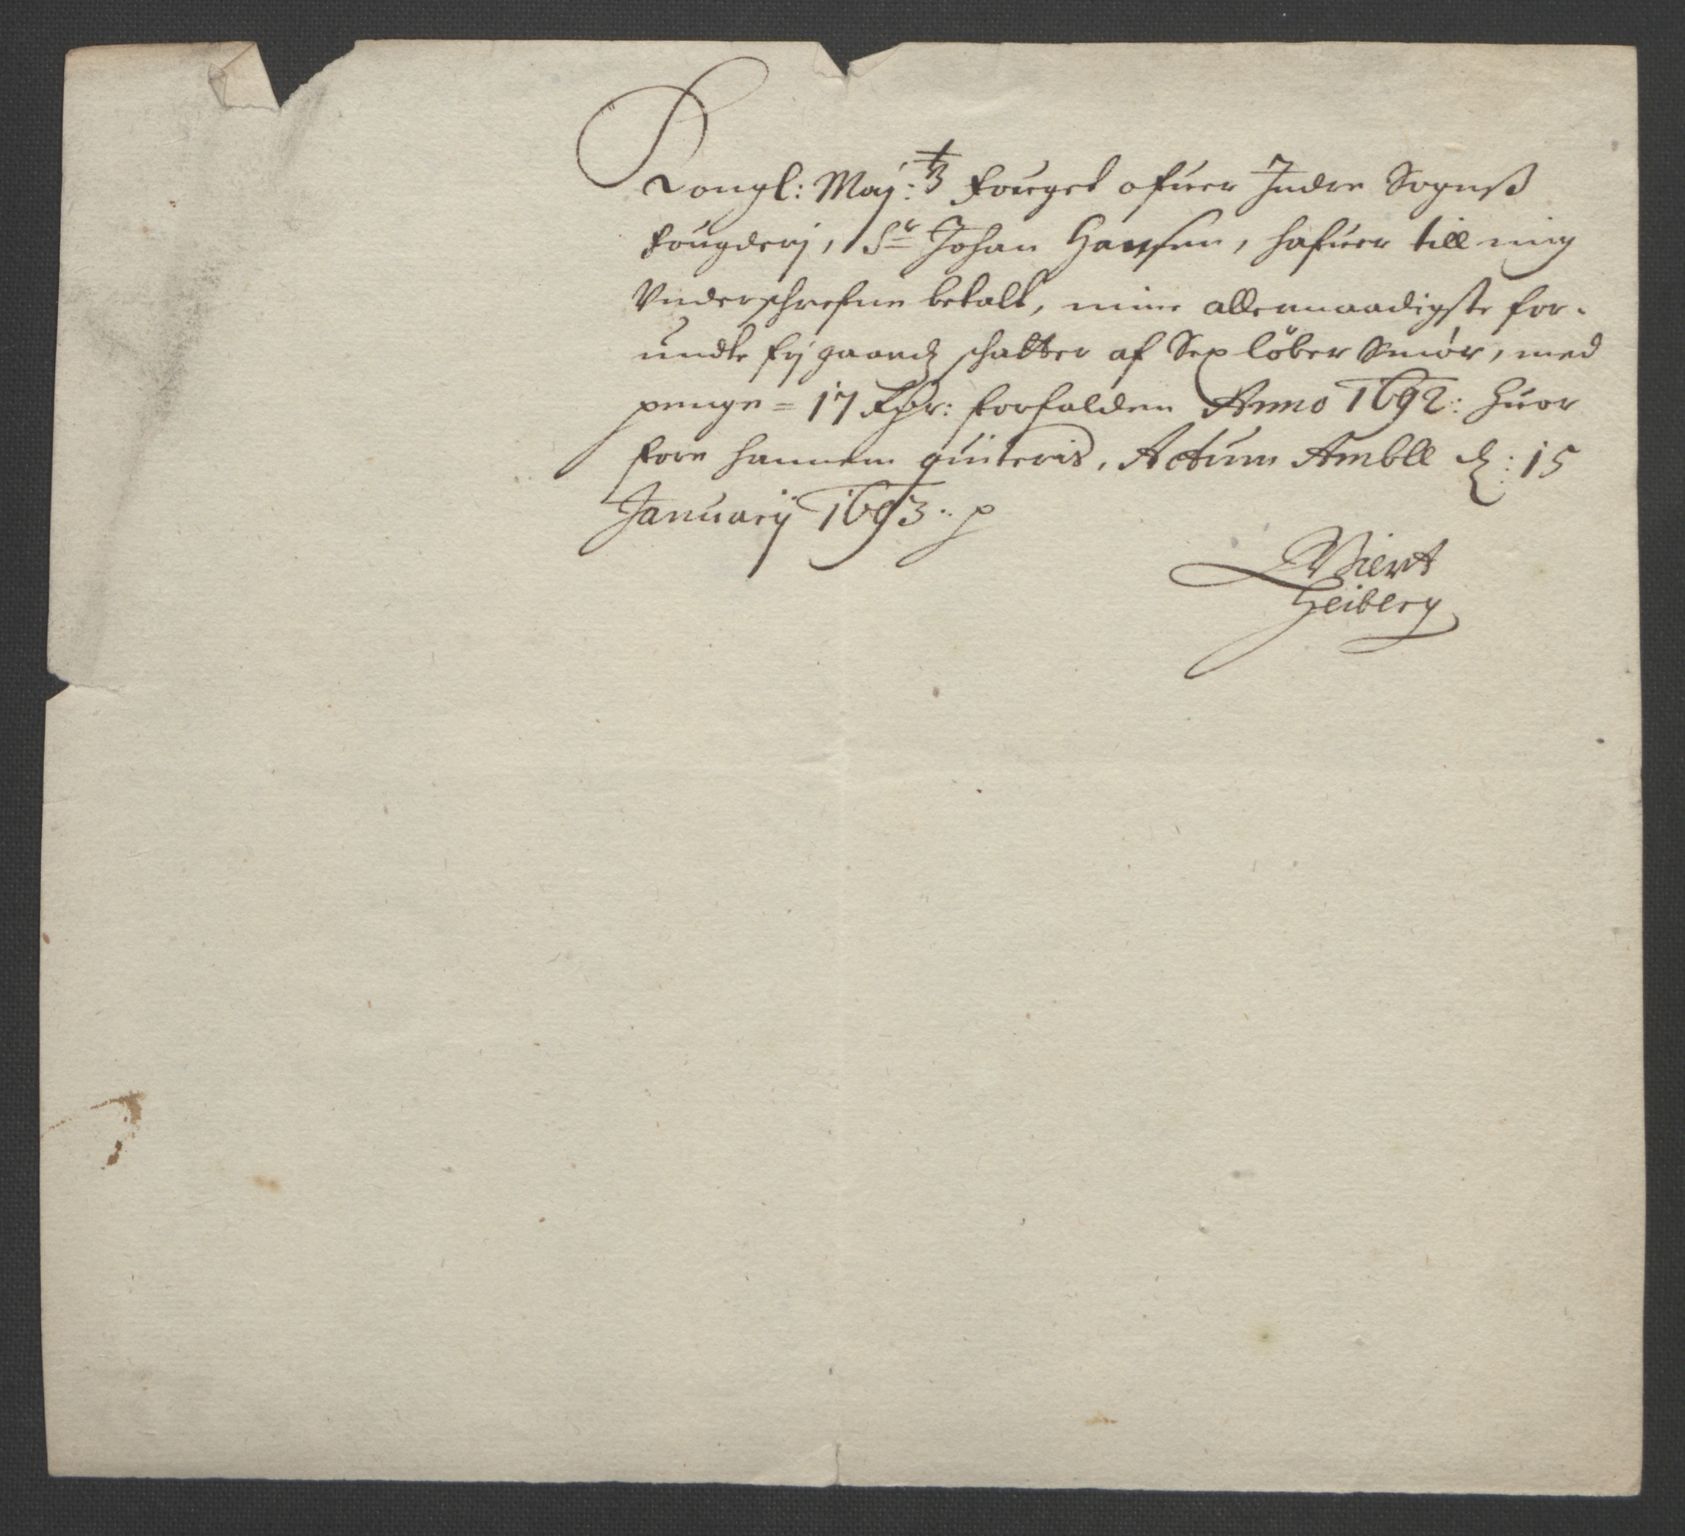 Kongl: Maj:ts Fouget ofuer Indre Sognß
Fougderj, Sr Johan Hansen, hafuer till mig
Underschrefne betalt, mine allernaadigste for-
undte frj gaardz schatter af Sex löber Smör, med
penge = 17 Rdr: forfalden Anno 1692: Huor
fore hannem quiteris, Actum Ambll d: 15
Januarij 1693. p
Heiberg